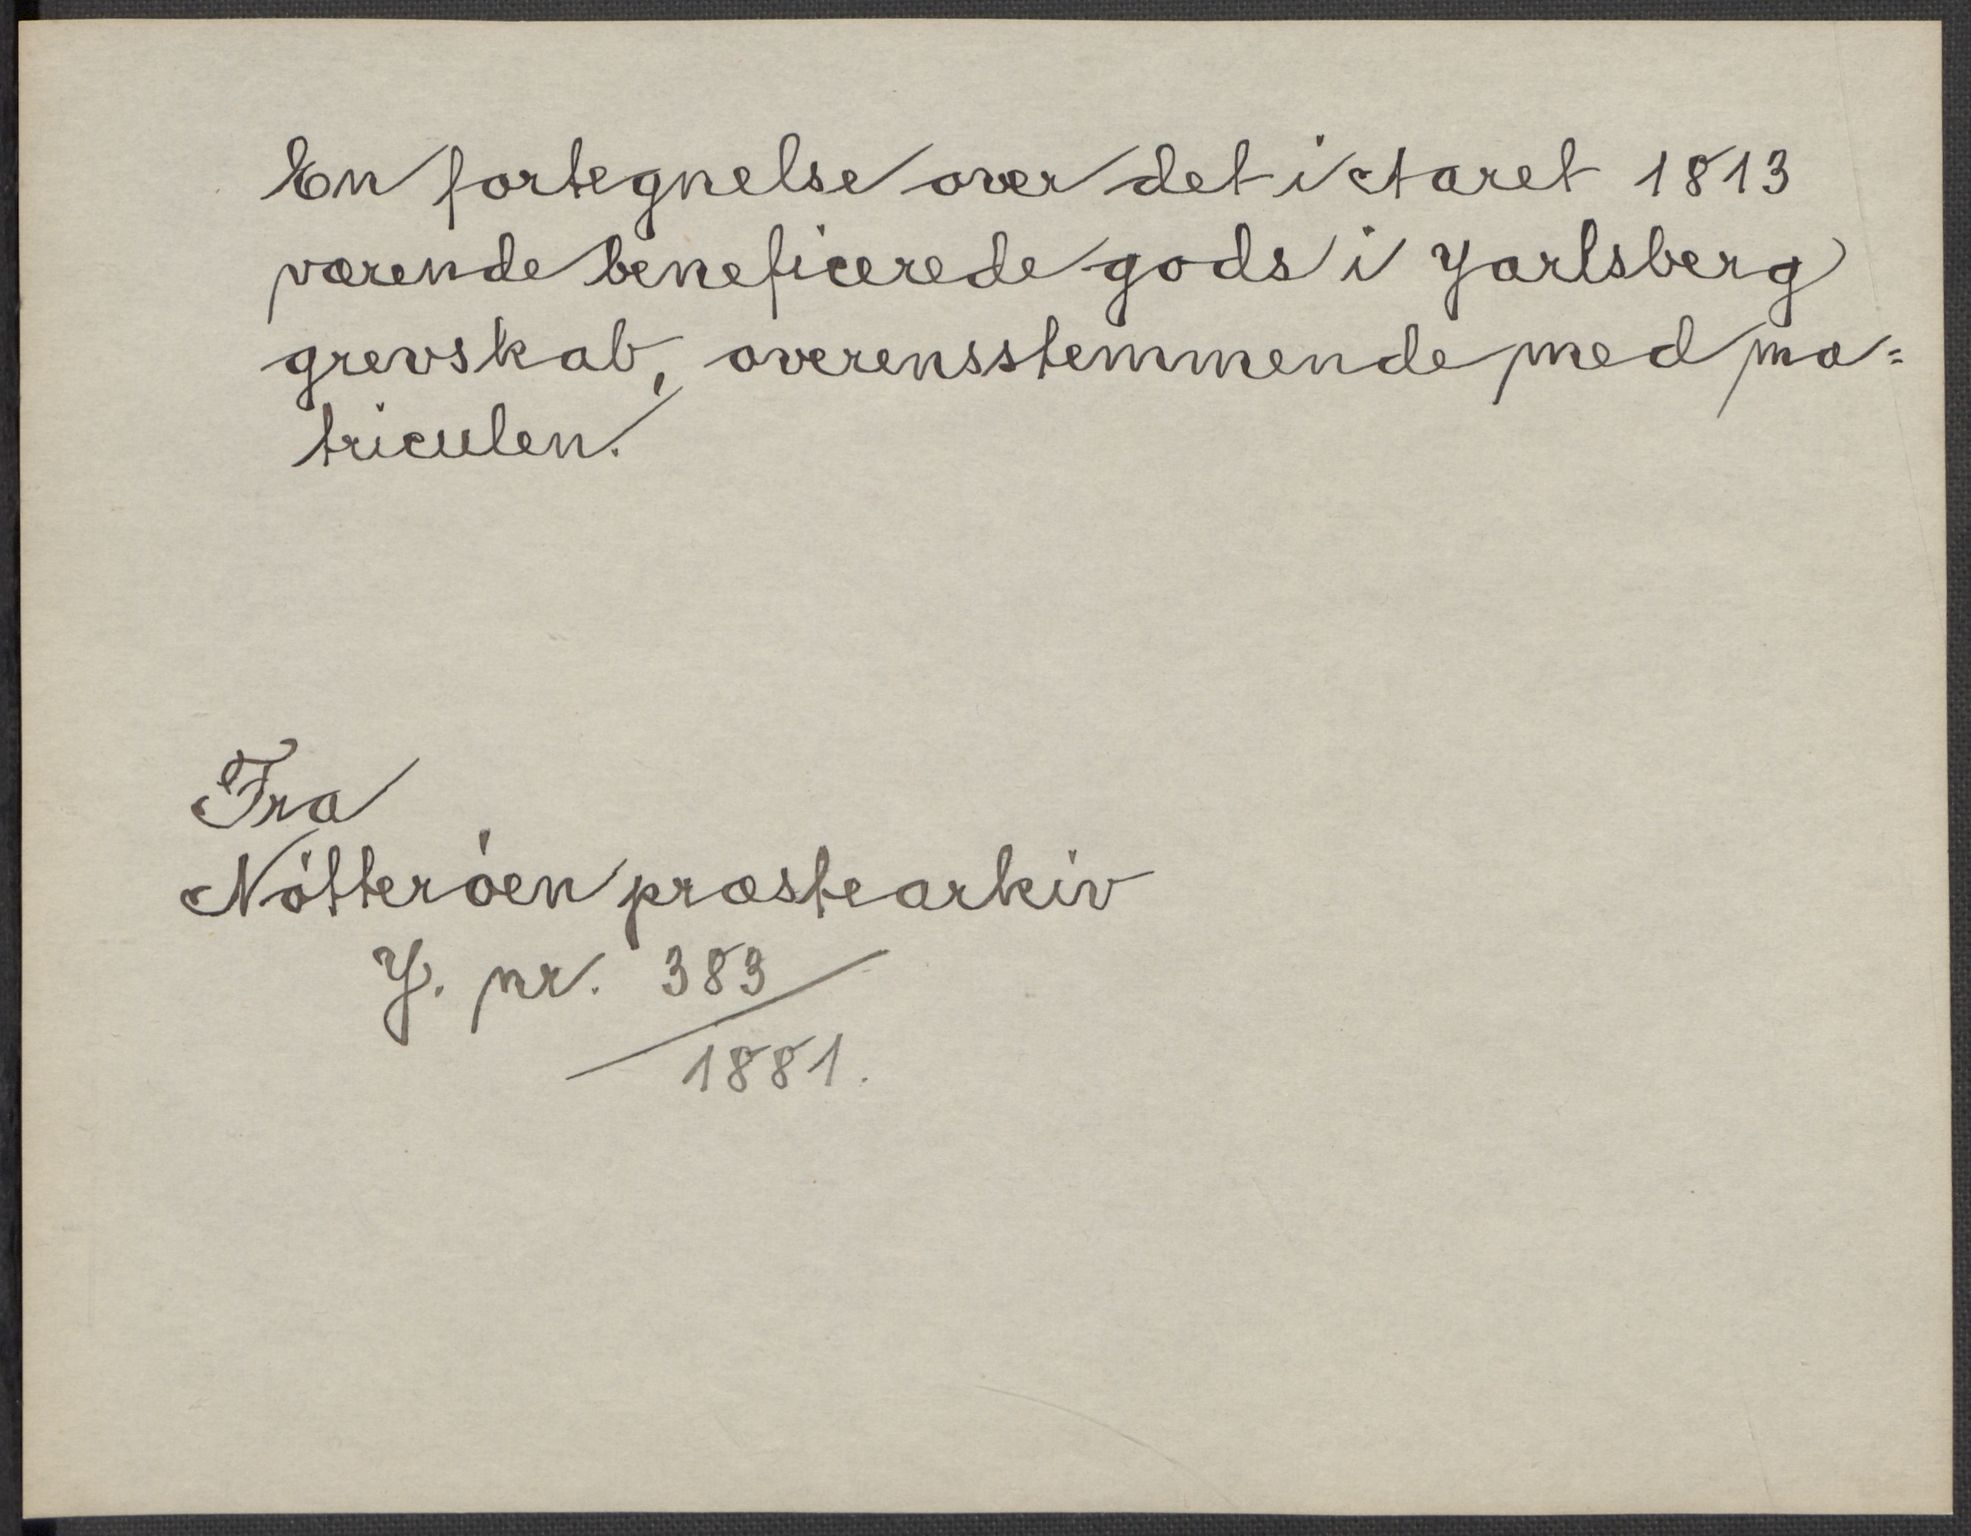 En fortegnelse over det i Aaret 1813
værende beneficerede gods i Jarlsberg
grevskab, overensstemmende med ma=
triculen.
Fra
Nötteröen præstearkiv
J. nr. 383
1881.